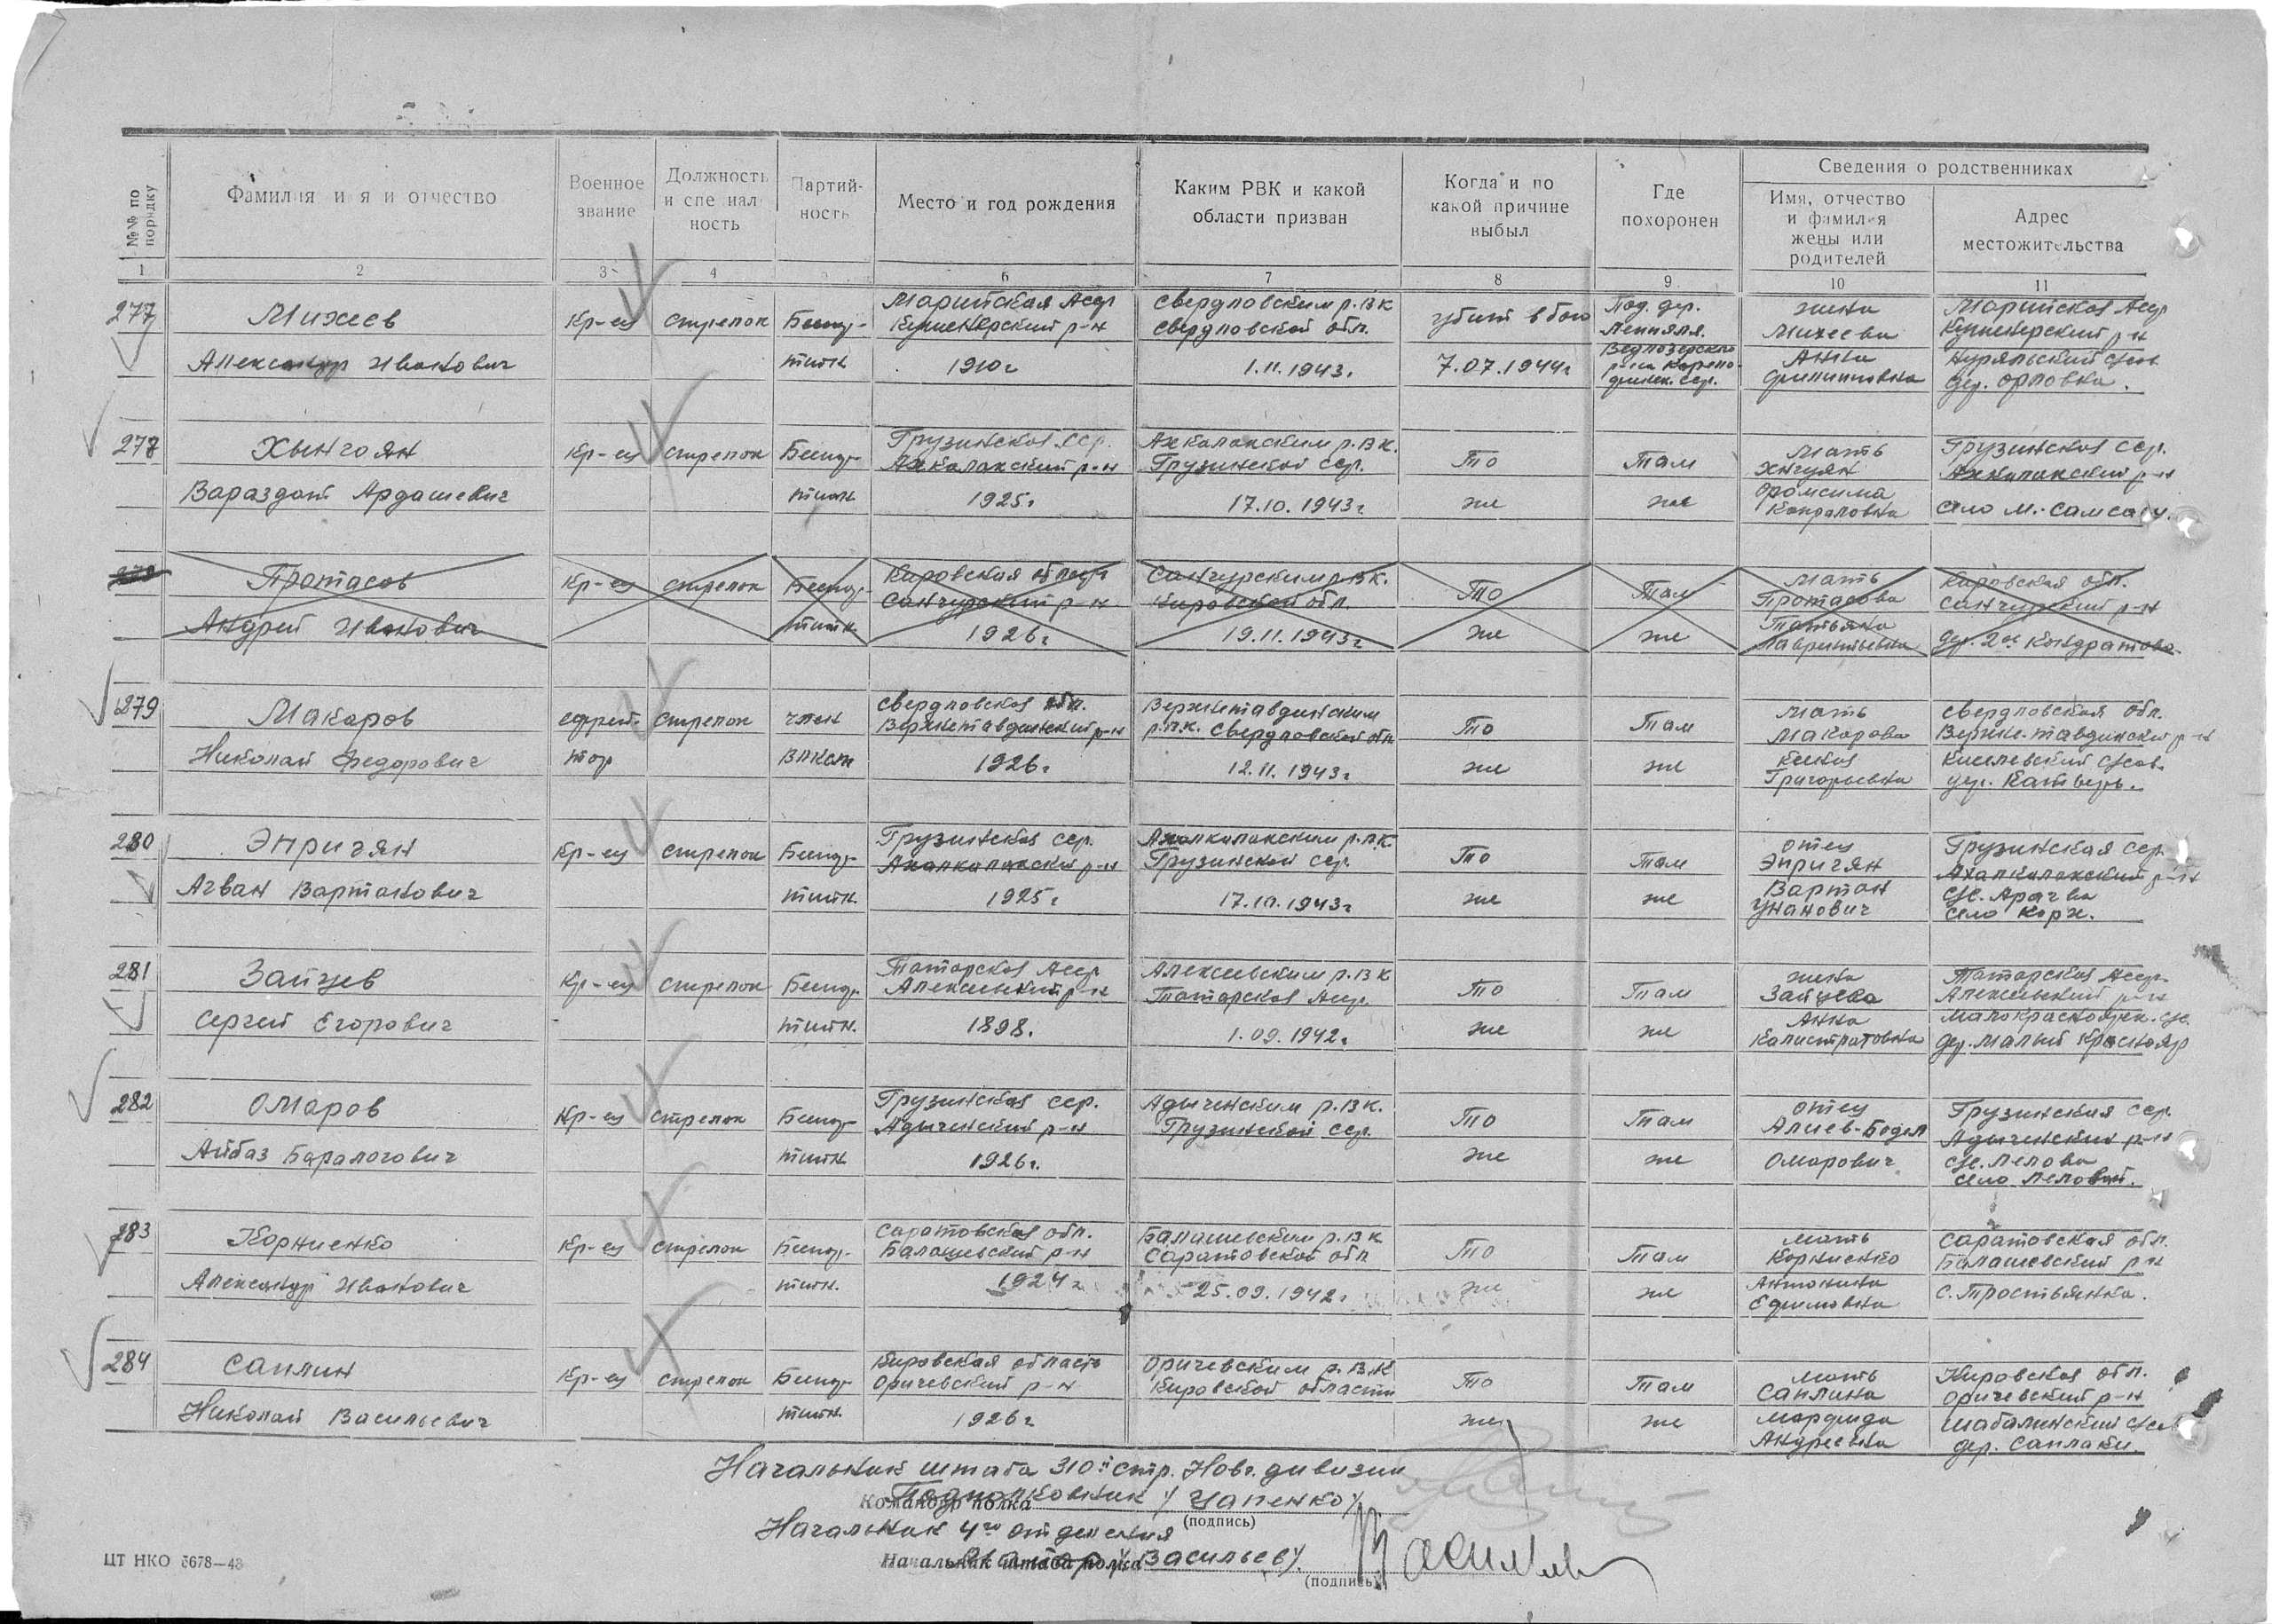 №№ по порядку
Фамилия и я и отчество
Военное звание
Должность и спе иал ность
Партий- ность
Место и год рождения
Каким РВК и какой области призван
Когда и по какой причине выбыл
Где похоронен
Сведения о родственниках
Имя, отчество и фамилия жены или родителей
Адрес местожительства
1 2 3 4 6 7 8 9 10 11
277 Михеев Кр-ец стрелок Беспар- Марийская Асср Свердловским р.В.К убит в бою Под. дер. жена Марийская Асср
Куженерский р-н Свердловской обл. Михеева Куженерский р-н
Александр Иванович тийн 1910г 1.11.1943г 7.07.1944г Ведлозерского Анна
р-на Карело- Филипповна дер. Орловка.
финск. сср.
278 Хынчоян Кр-ец стрелок Беспар- Грузинская сср. Ахкалакским р.В.К. То Там мать Грузинская сср.
Ахкалакский р-н Грузинской сср. Ахкалакский р-н
Вараздат Ардашевич тийн 1925г 17.10.1943г же же село М.-Самсар
Протасов Кр-ец стрелок Беспар- Кировская область Санчурским р.В.К. То Там мать Кировская обл.
Санчурский р-н Кировской обл. Протасова Санчурский р-н
Андрей Иванович тийн 1926г 19.11.1943г же же Татьяна
Лаврентьевна дер. 2ое Кондратово.
279 Макаров ефрей- стрелок член Свердловская обл. Верхнетавдинским То Там мать Свердловская обл.
Верхнетавдинский р-н р.В.К. Свердловской обл Макарова Верхне-тавдинский р-н
Николай Федорович тор ВЛКСМ 1926г 12.11.1943г же же
Григорьевна
280 Эпричян Кр-ец стрелок Беспар- Грузинская сср. Ахалкалакским р.В.К. То Там отец Грузинская сср.
Ахалкалакский р-н Грузинской сср. Эпричян Ахалкалакский р-н
Агван Вартанович тийн. 1925г 17.10.1943г же же Вартан
Унанович село Корх.
281 Зайцев Кр-ец стрелок Беспар- Татарская Асср Алексеевским р.В.К То Там жена Татарская Асср.
Алексеевский р-н Татарской Асср. Зайцева Алексеевский р-н
Сергей Егорович тийн. 1898. 1.09.1942г же же Анна Малокрасноярск. с/с.
Калистратовна дер. Малый Красный Яр
282 Омаров Кр-ец стрелок Беспар- Грузинская сср. Адыгенским р.В.К. То Там отец Грузинская сср.
Адыгенский р-н Грузинской сср. Алиев-Бодел Адыгенский р-н
Айбаз Баралогович тийн 1926г. же же Омарович с/с. Лелова
село Леловай.
283 Корниенко Кр-ец стрелок Беспар- Саратовская обл. Балашевским р.В.К То Там мать Саратовская обл.
Балашевский р-н Саратовской обл Корниенко Балашевский р-н
Александр Иванович тийн. 1924г 25.09.1942г же же Антонина с. Тростьянка.
Ефимовна
284 Саплин Кр-ец стрелок Беспар- Кировская область Оричевским р.В.К То Там мать Кировская обл.
Оричевский р-н Кировской области Саплина Оричевский р-н
Николай Васильевич тийн. 1926г же же Шабалинский с/сов
Андреевна дер. Саплаки.
Начальник штаба 310й стр. Новг. дивизии
Командир полка Подполковник /Цапенко/
(подпись)
Начальник 4го отделения
Начальник штаба полка /Васильев/.
(подпись)
ЦТ НКО 5678—43